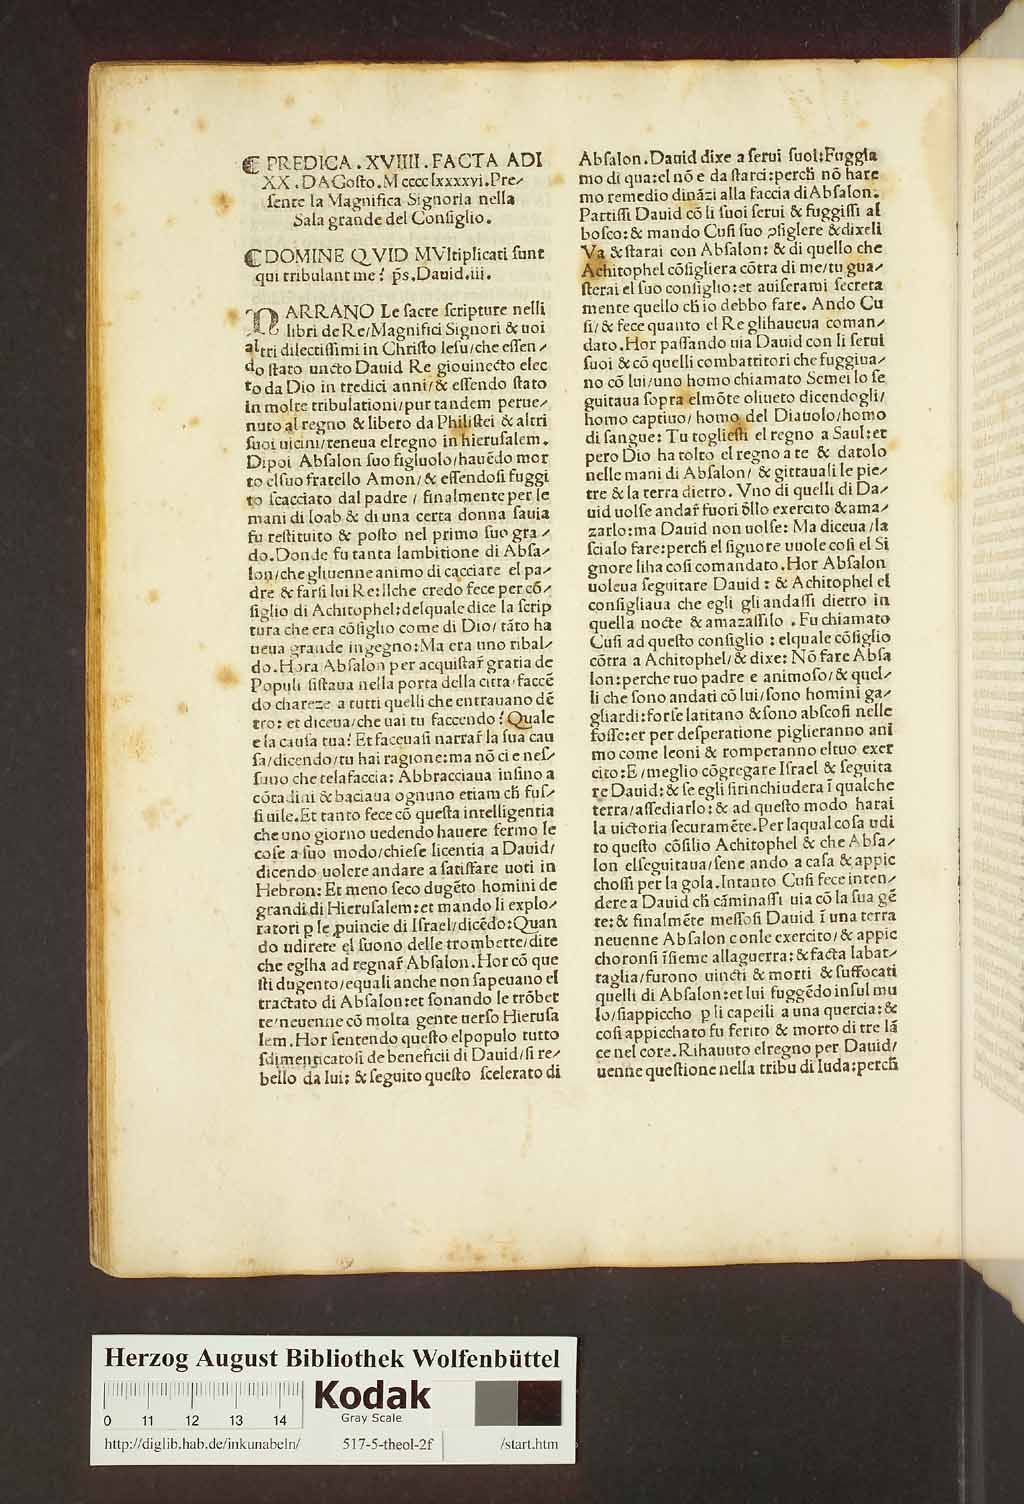 PREDICA . XVIIII . FACTA ADI
XX . DAGosto . M cccc lxxxxvi . Pre⸗
sente la Magnifica Signoria nella
Sala grande del Consiglio .
DOMINE QVID MVltiplicati sunt
qui tribulant me? ps̄ . Dauid . iii .
NARRANO Le sacre scripture nelli
libri de Re/Magnifici Signori & uoi
altri dilectissimi in Christo Iesu/che essen⸗
do stato uncto Dauid Re giouinecto elec
to da Dio in tredici anni/& essendo stato
in molte tribulationi/pur tandem perue⸗
nuto al regno & libero da Philistei & altri
suoi uicini/teneua elregno in hierusalem .
Dipoi Absalon suo figluolo/hauēdo mor
to elsuo fratello Amon/& essendosi fuggi
to scacciato dal padre / finalmente per le
mani di Ioab & di una certa donna sauia
fu restituito & posto nel primo suo gra⸗
do . Donde fu tanta lambitione di Absa⸗
lon/che gliuenne animo di cacciare el pa⸗
dre & farsi lui Re:Ilche credo fece per cō⸗
siglio di Achitophel:delquale dice la scrip
tura che era cōsiglio come di Dio/tāto ha
ueua grande ingegno:Ma era uno ribal⸗
do . Hora Absalon per acquistar̄ gratia de
Populi sistaua nella porta della citta/faccē
do chareze a tutti quelli che entrauano dē
tro: et diceua/che uai tu faccendo? Quale
e la causa tua? Et faceuasi narrar̄ la sua cau
sa/dicendo/tu hai ragione:ma nō ci e nes⸗
suno che telafaccia: Abbracciaua insino a
cōtadini & baciaua ognuno etiam ch̄ fus⸗
si uile . Et tanto fece cō questa intelligentia
che uno giorno uedendo hauere fermo le
cose a suo modo/chiese licentia a Dauid/
dicendo uolere andare a satisfare uoti in
Hebron: Et meno seco dugēto homini de
grandi di Hierusalem:et mando li explo⸗
ratori p̲ le ꝓuincie di Israel/dicēdo:Quan
do udirete el suono delle trombette/dite
che eglha ad regnar̄ Absalon . Hor cō que
sti dugento/equali anche non sapeuano el
tractato di Absalon:et sonando le trōbet
te/neuenne cō molta gente uerso Hierusa
lem . Hor sentendo questo elpopulo tutto
sdimenticatosi de beneficii di Dauid/si re⸗
bello da lui: & seguito questo scelerato di
Absalon . Dauid dixe a serui suoi:Fuggia
mo di qua:el nō e da starci:perch̄ nō hare
mo remedio dināzi alla faccia di Absalon .
Partissi Dauid cō li suoi serui & fuggissi al
bosco: & mando Cusi suo ꝯsiglere & dixeli
Va & starai con Absalon: & di quello che
Achitophel cōsigliera cōtra di me/tu gua⸗
sterai el suo consiglio:et auiserami secreta
mente quello ch̄ io debbo fare . Ando Cu
si/& fece quanto el Re glihaueua coman⸗
dato . Hor passando uia Dauid con li serui
suoi & cō quelli combattitori che fuggiua⸗
no cō lui/uno homo chiamato Semei lo se
guitaua sopra elmōte oliueto dicendogli/
homo captiuo/ homo del Diauolo/homo
di sangue: Tu togliesti el regno a Saul:et
pero Dio ha tolto el regno a te & datolo
nelle mani di Absalon/ & gittauali le pie⸗
tre & la terra dietro . Vno di quelli di Da⸗
uid uolse andar̄ fuori d̄llo exercito & ama⸗
zarlo:ma Dauid non uolse: Ma diceua/la
scialo fare:perch̄ el signore uuole cosi el Si
gnore liha cosi comandato . Hor Absalon
uoleua seguitare Dauid : & Achitophel el
consigliaua che egli gli andassi dietro in
quella nocte & amazassilo . Fu chiamato
Cusi ad questo consiglio : elquale cōsiglio
cōtra a Achitophel/& dixe: Nō fare Absa
lon:perche tuo padre e animoso/& quel⸗
li che sono andati cō lui/sono homini ga⸗
gliardi:forse latitano & sono abscosi nelle
fosse:et per desperatione piglieranno ani
mo come leoni & romperanno eltuo exer
cito:E/meglio cōgregare Israel & seguita
re Dauid:& se egli sirinchiudera ī qualche
terra/assediarlo: & ad questo modo harai
la uictoria securamēte . Per laqual cosa udi
to questo cōsilio Achitophel & che Absa⸗
lon elseguitaua/sene ando a casa & appic
chossi per la gola . Intanto Cusi fece inten⸗
dere a Dauid ch̄ cāminassi uia cō la sua gē
te:& finalmēte messosi Dauid ī una terra
neuenne Absalon conle exercito/& appic
choronsi īsieme allaguerra:& facta labat⸗
taglia/furono uincti & morti & suffocati
quelli di Absalon:et lui fuggēdo insul mu
lo/siappiccho p̲ li capelli a una quercia:&
cosi appicchato fu ferito & morto di tre lā
ce nel core . Rihauuto elregno per Dauid/
uenne questione nella tribu di Iuda:perch̄
Herzog August Bibliothek Wolfenbüttel
0 11 12 13 14
Kodak
Gray Scale
http://diglib.hab.de/inkunabeln/ 517-5-theol-2f /start.htm